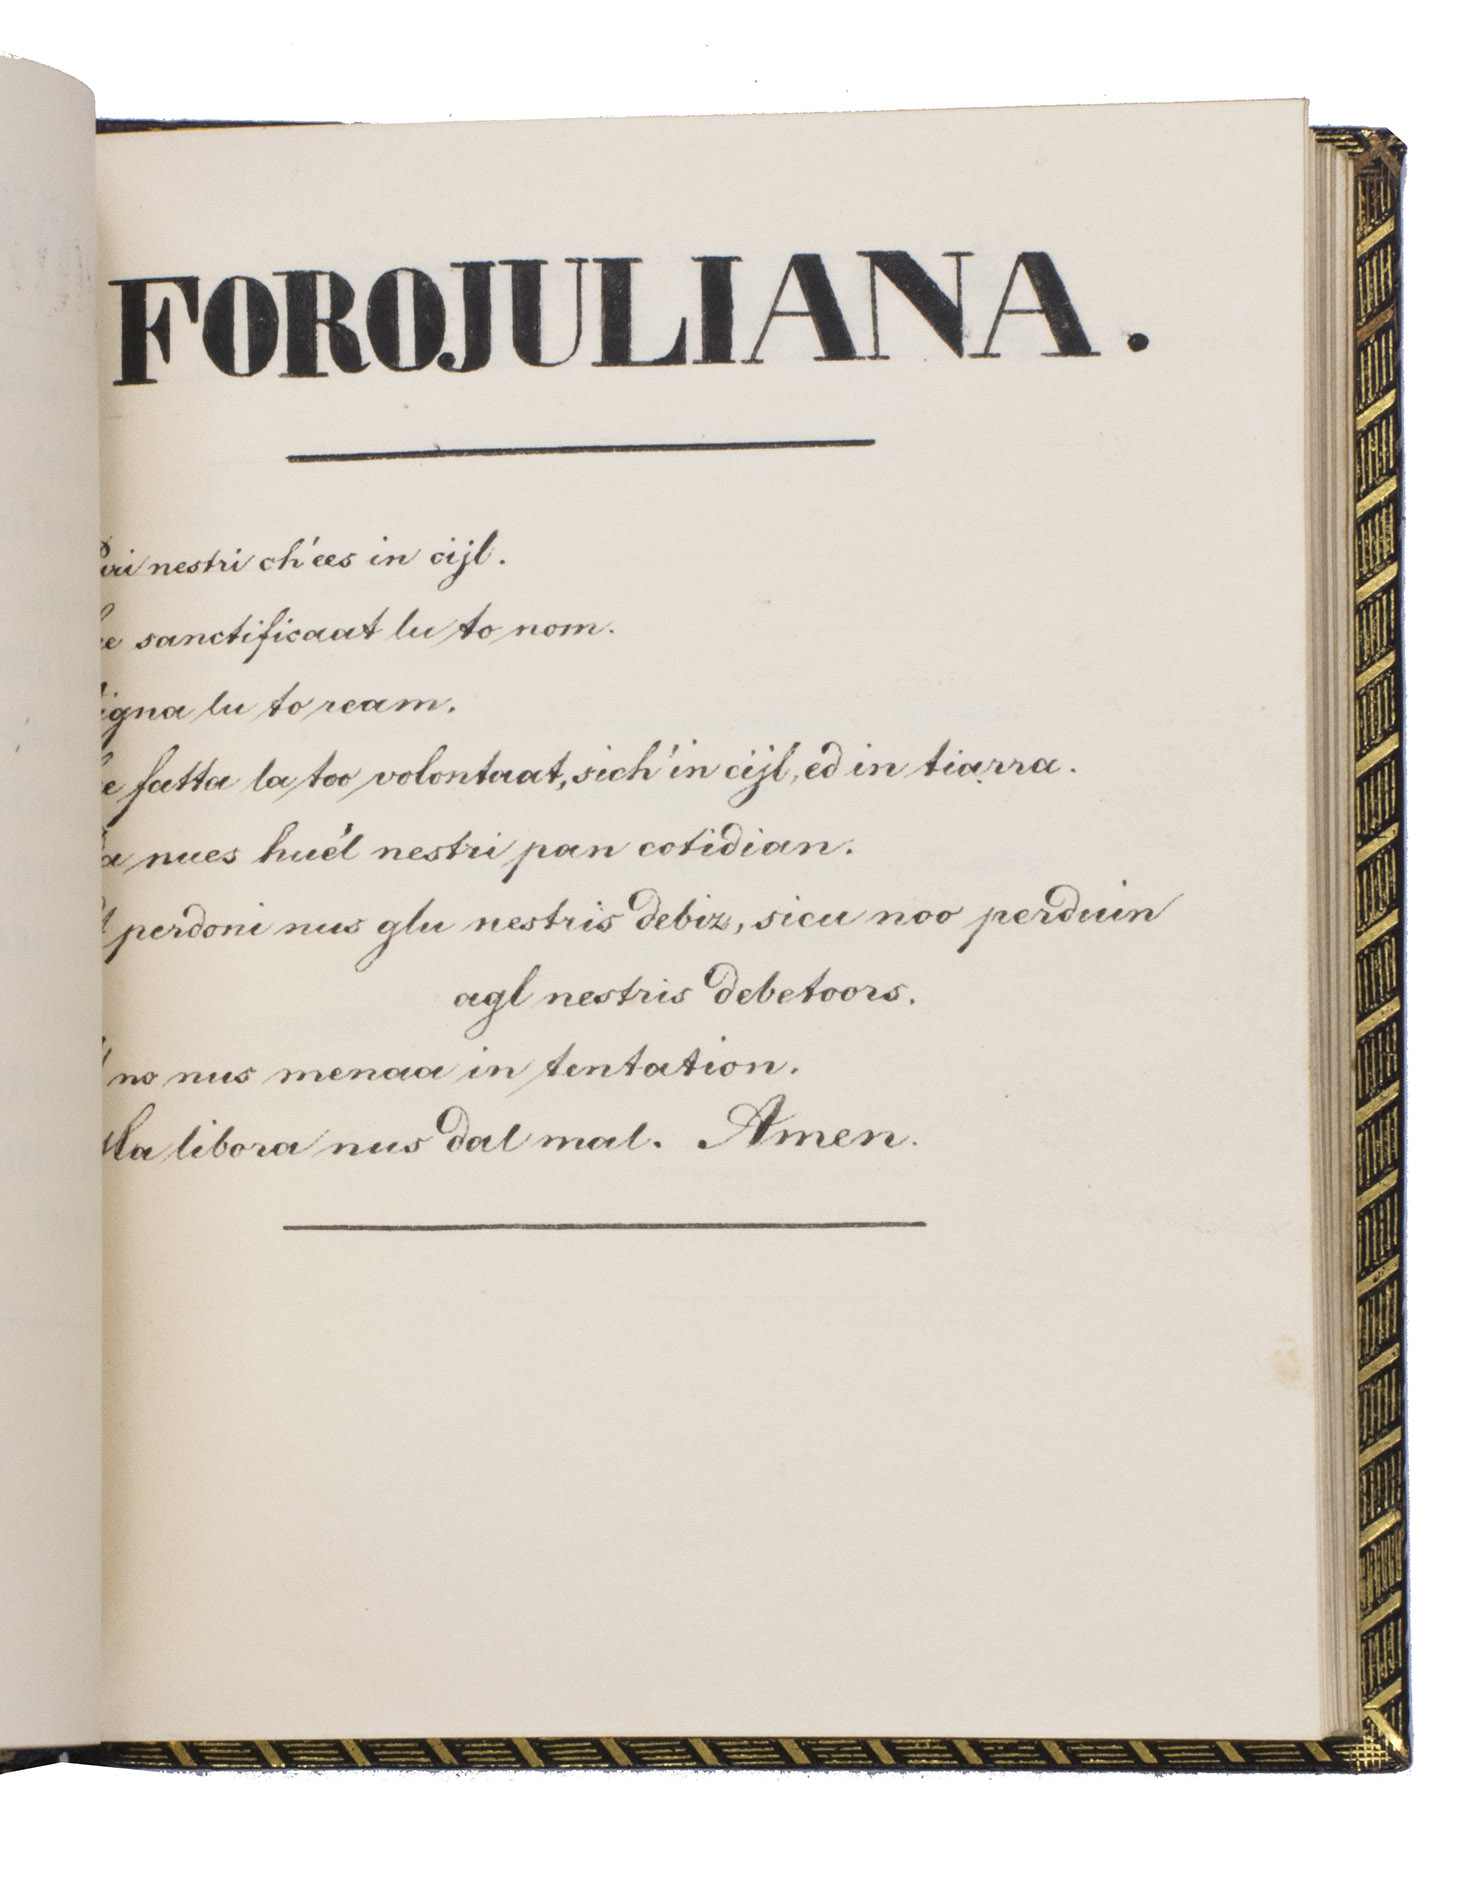 FOROJULIANA.
nestri ch'ees in cijl.
sanctificaat lu to nom.
lu to ream.
fatta la too volontaat, sich' in cijl, ed in tiarra.
nues huél nestri pan cotidian.
perdoni nus glu nestris debiz, sicu noo perduin
agl nestris debetoors.
no nus menaa in tentation.
libora nus dal mal. Amen.